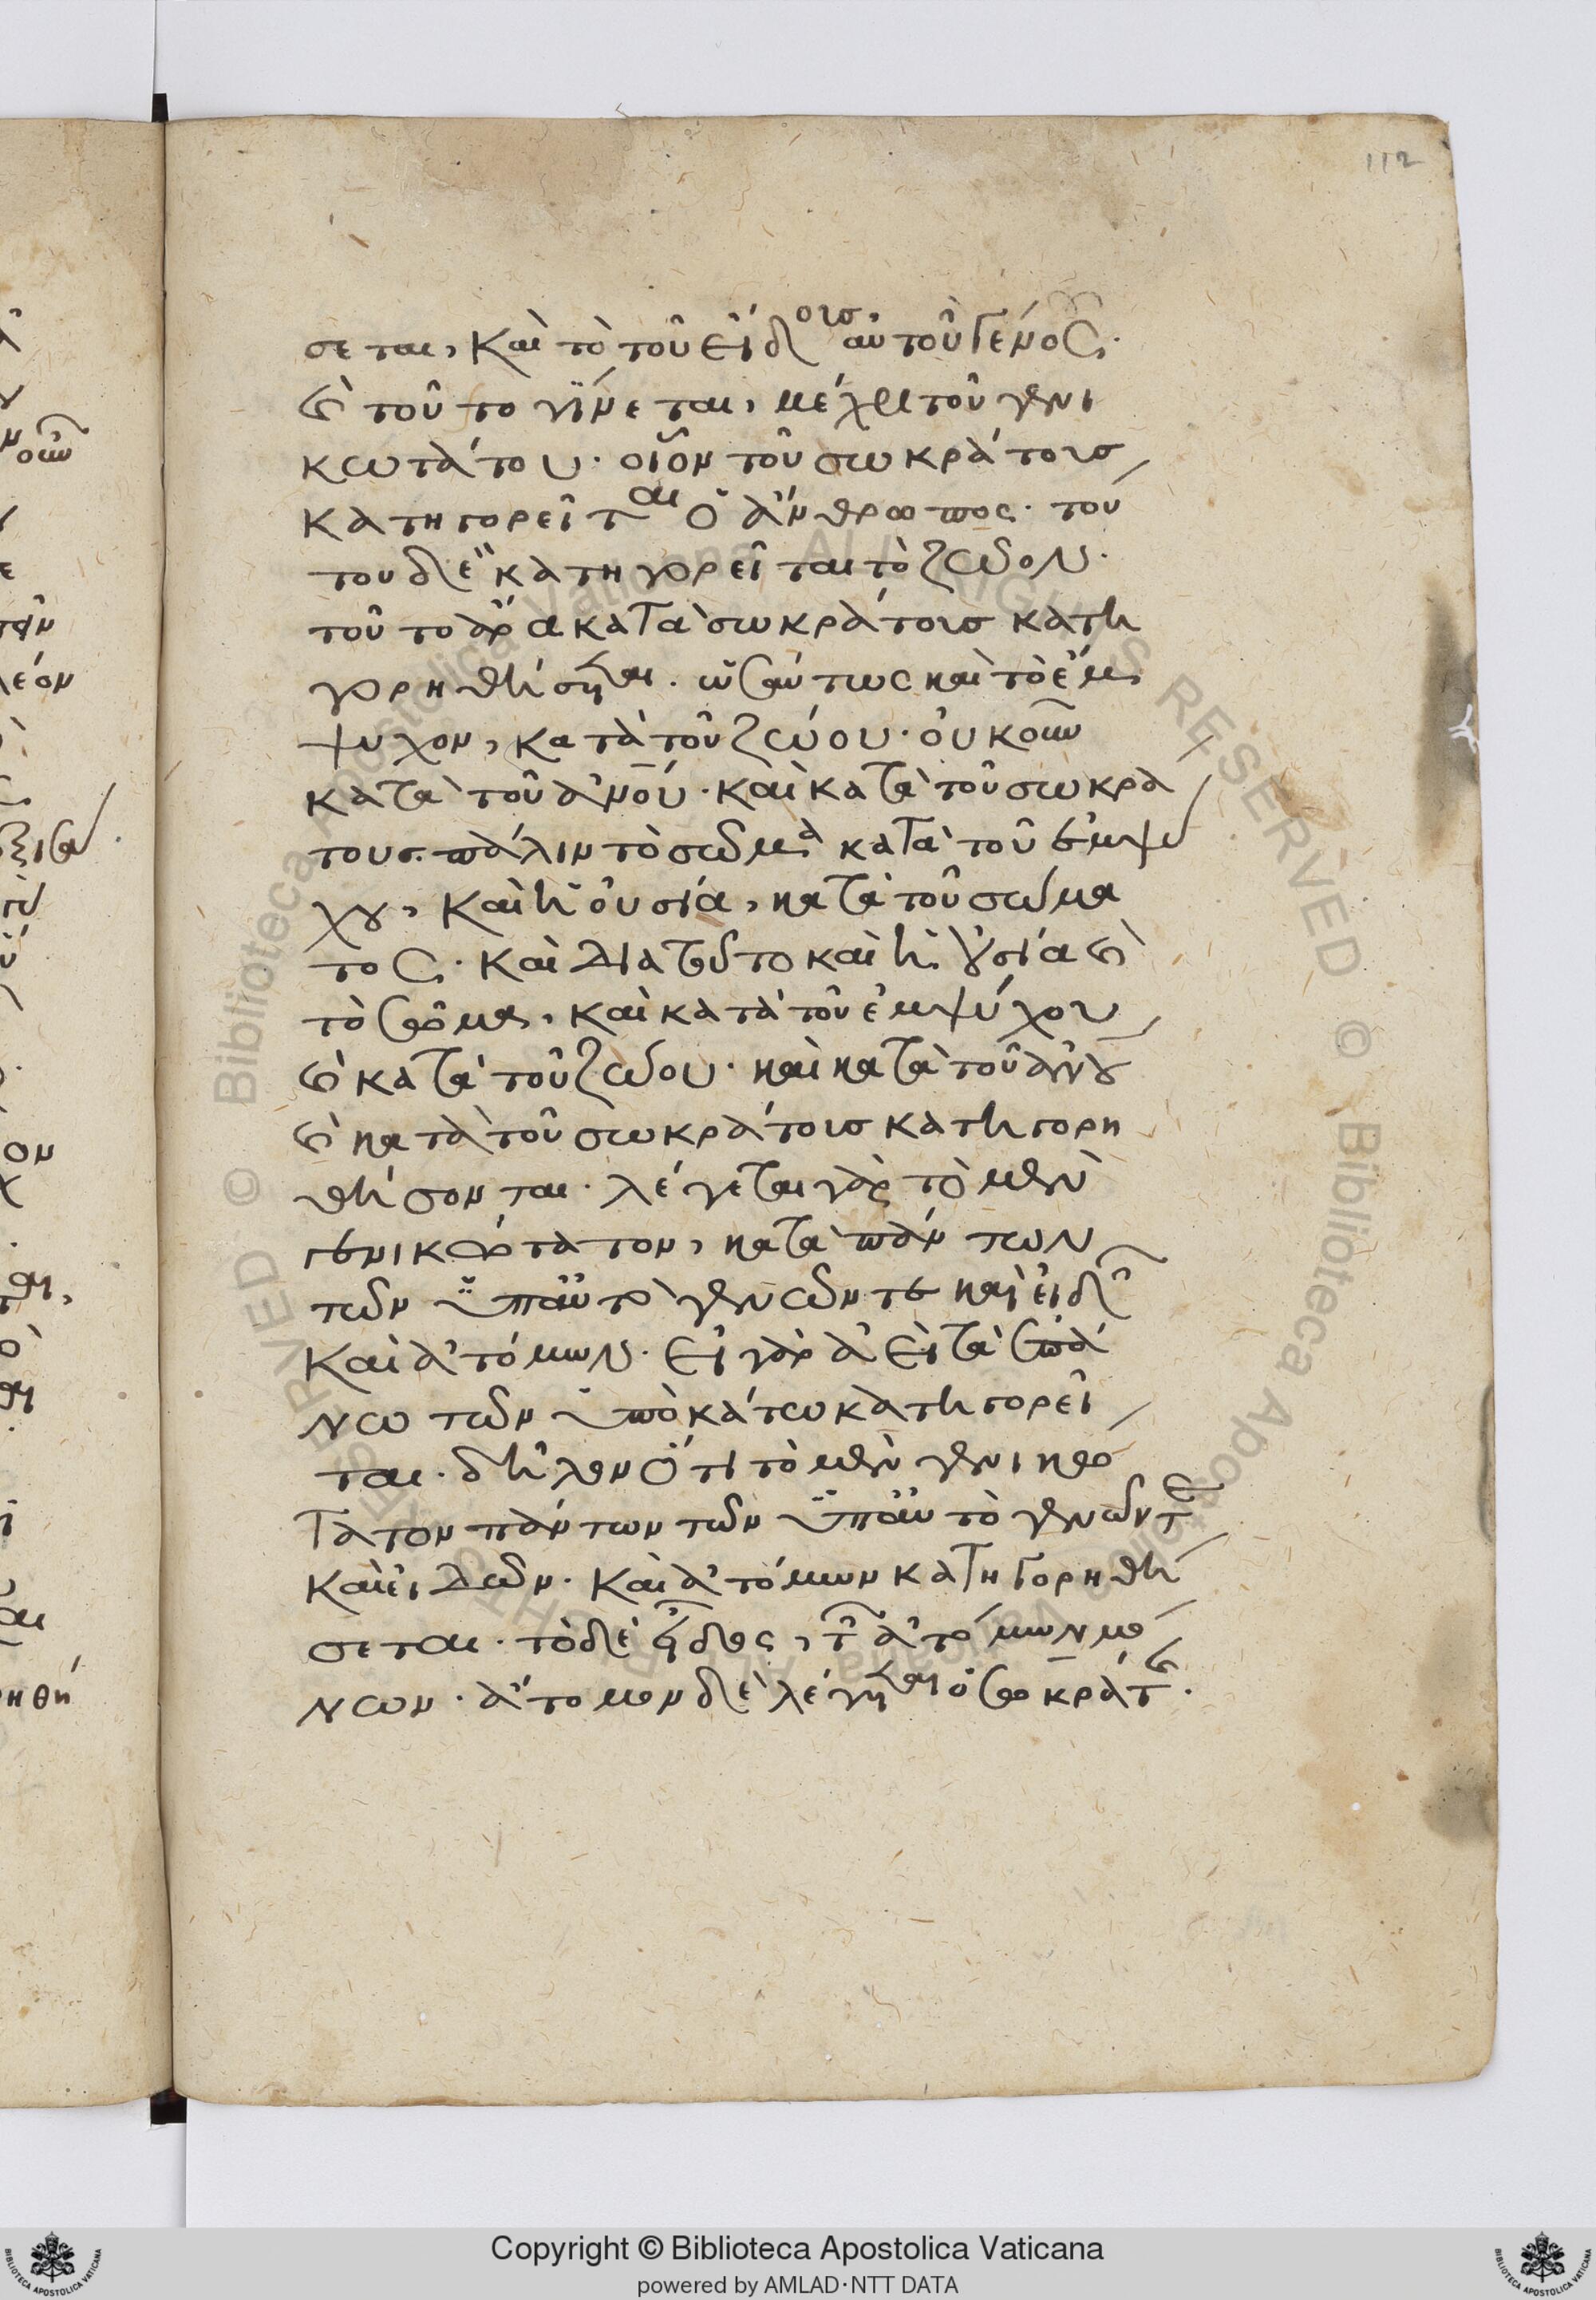 112
σεται, καὶ τὸ τοῦ εἴδους αὐτοῦ γένος.
καὶ τοῦτο γίνεται, μέχρι τοῦ γενι
κωτάτου. οἷον τοῦ σωκράτους
κατηγορεῖται ὁ ἄνθρωπος. τού
του δὲ κατηγορεῖται τὸ ζῶον.
τοῦτο ἄρα κατὰ σωκράτους κατη
γορηθήσεται. ὡσαύτως καὶ τὸ ἔμ
ψυχον, κατὰ τοῦ ζώου. οὐκοῦν
κατὰ τοῦ ἀνου. καὶ κατὰ τοῦ σωκρά
τους. πάλιν τὸ σῶμα κατὰ τοῦ ἐμψύ
χου, καὶ ἡ οὐσία, κατὰ τοῦ σώμα
τος. καὶ διατοῦτο καὶ ἡ οὐσία καὶ
τὸ σῶμα, καὶ κατὰ τοῦ ἐμψύχου
καὶ κατὰ τοῦ ζώου. καὶ κατὰ τοῦ ἀνου
καὶ κατὰ τοῦ σωκράτους κατηγορη
θήσονται. λέγεται γὰρ τὸ μὲν
γενικώτατον, κατὰ πάντων
τῶν ὑπαυτὸ γενῶν τε καὶ εἰδῶν
καὶ ἀτόμων. εἰ γὰρ ἀεὶ τὰ ἐπά
νω τῶν ὑποκάτω κατηγορεῖ
ται. δῆλον ὅτι τὸ μὲν γενικώ
τατον πάντων τῶν ὑπαυτὸ γενῶν τε
καὶ εἰδῶν. καὶ ἀτόμων κατηγορηθή
σεται. τὸ δὲ εἶδος, τῶν ἀτόμων μό
νων. ἄτομον δὲ λέγεται ὁ σωκράτης.
Copyright © Biblioteca Apostolica Vaticana
powered by AMLAD·NTT DATA